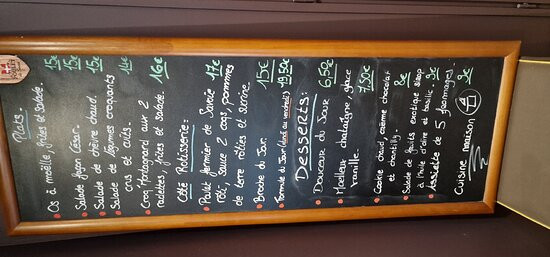 Plats.
Os à moëlle, frites et salade. 15€
Salade façon César. 15€
Salade de chèvre chaud. 15€
Salade de légumes croquants
crus et cuits. 14€
Croq Montagnard aux 2
raclettes, frites et salade. 16€
Côté Rotisserie:
Poulet fermier de Savoie 17€
rôti, sauce 2 cops, pommes
de terre rôties et sucrine
Broche du Jour. 15€
Formule du Jour (lundi au vendredi) 19,50€
DESSERTS:
Douceur du Jour 6,50€
Moelleux chataîgne, glace
vanille. 7,50€
Cookie chaud, crème chocolat
et chantilly. 8€
Salade de fruits exotique sirop
à l'huile d'olive et basilic 9€
Assiette de 5 fromages! 9€
cuisine maison